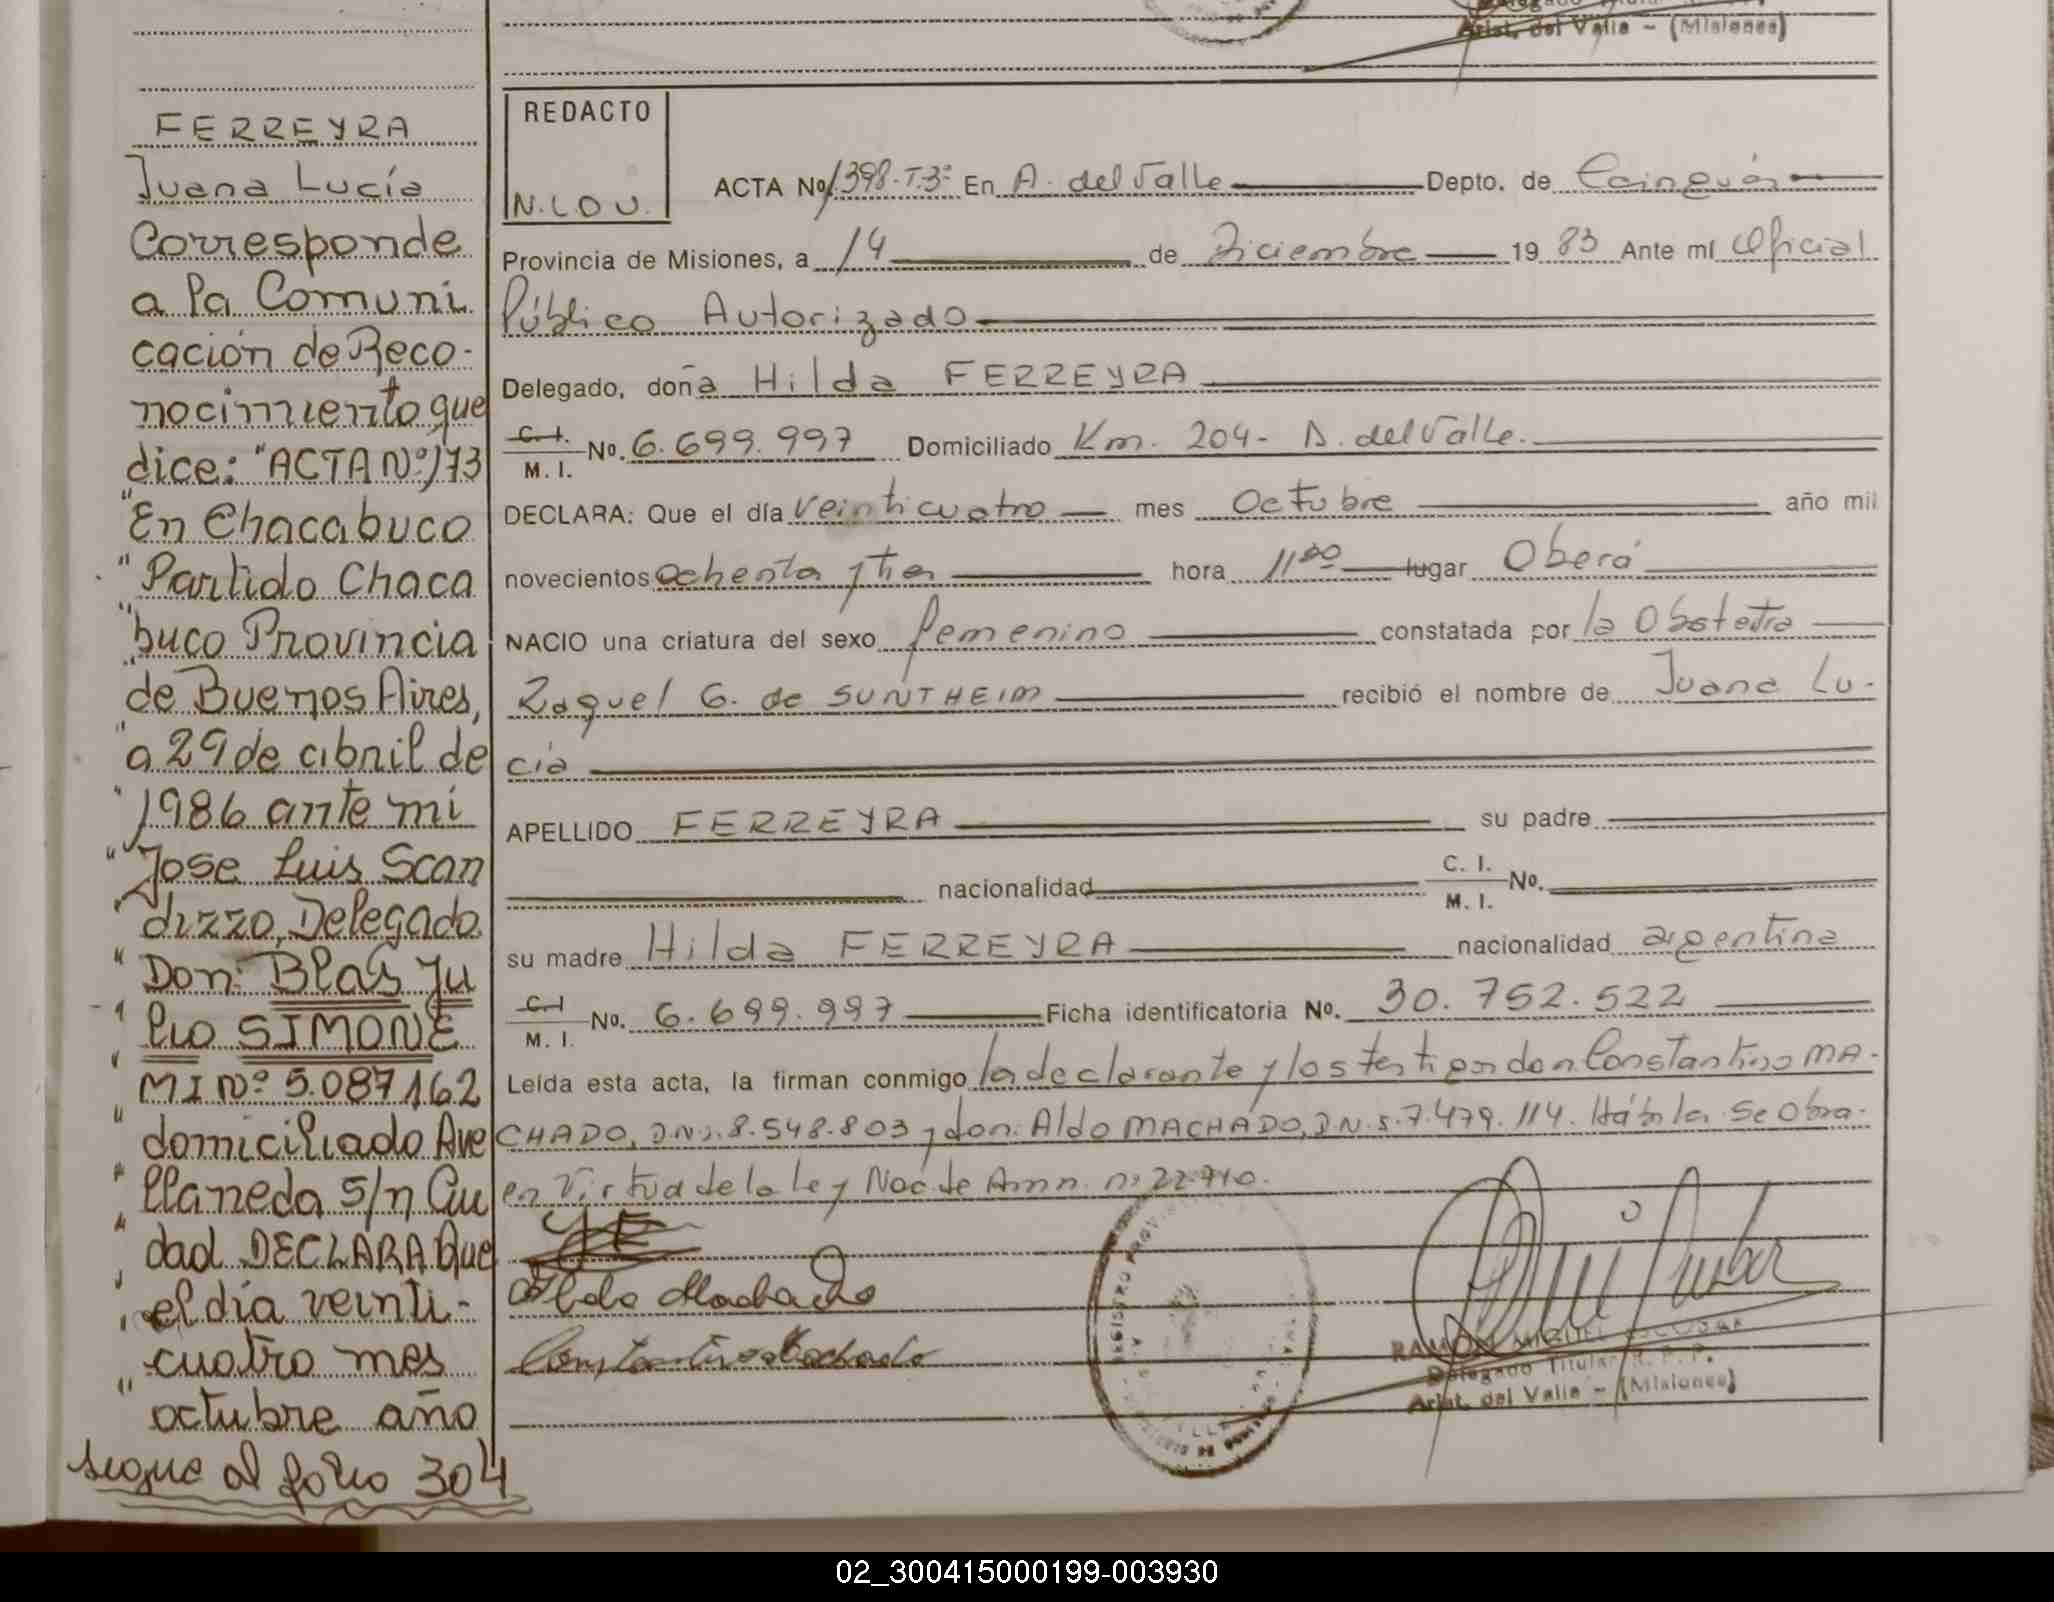 Arist. del Valle - (Misiones)
FERREYRA
Juana Lucía
Corresponde
a la Comuni
cación de Reco-
nocimiento que
dice: "ACTA Nº 173
"En Chacabuco
"Partido Chaca
"buco Provincia
"de Buenos Aires,
"a 29 de abril de
"1986 ante mi
"Jose Luis Scan
"dizzo, Delegado
"Don: Blas Ju
"lio SIMONE
"MI Nº 5.087162
"domiciliado Ave
"llaneda S/n Ciu
"dad DECLARA Que
"el día veinti-
"cuatro mes
"octubre año
sigue al folio 304
REDACTO
N.L.D.U.
ACTA No. 398-T.3º En A. del Valle Depto. de Cainguás
Provincia de Misiones, a 14 de Diciembre 19 83 Ante mí Oficial
Público Autorizado
Delegado, doña Hilda FERREYRA
C. I.
M. I. No. 6.699.997 Domiciliado Km. 204- A. del Valle.
DECLARA: Que el día veinticuatro mes Octubre año mil
novecientos ochenta y tres hora 11⁰⁰ lugar Oberá
NACIO una criatura del sexo femenino constatada por la Obstetra
Raquel G. de SUNTHEIM recibió el nombre de Juana Lu-
cía
APELLIDO FERREYRA su padre
nacionalidad C. I.
M. I. No.
su madre Hilda FERREYRA nacionalidad argentina
C. I
M. I. No. 6.699.997 Ficha identificatoria No. 30.752.522
Leída esta acta, la firman conmigo la declarante y los testigos don Constantino MA-
CHADO, D.N.I. 8.548.803 y don: Aldo MACHADO, D.N.I. 7.479.114. Se Obra
en Virtud de la ley Nac de Amn. nº 22.710.
Aldo Machado
Constantino Machado
REGISTRO PROVIN
RAMON MIGUEL ESCOBAR
Delegado Titular R. P. P.
Arist. del Valle - (Misiones)
02_300415000199-003930